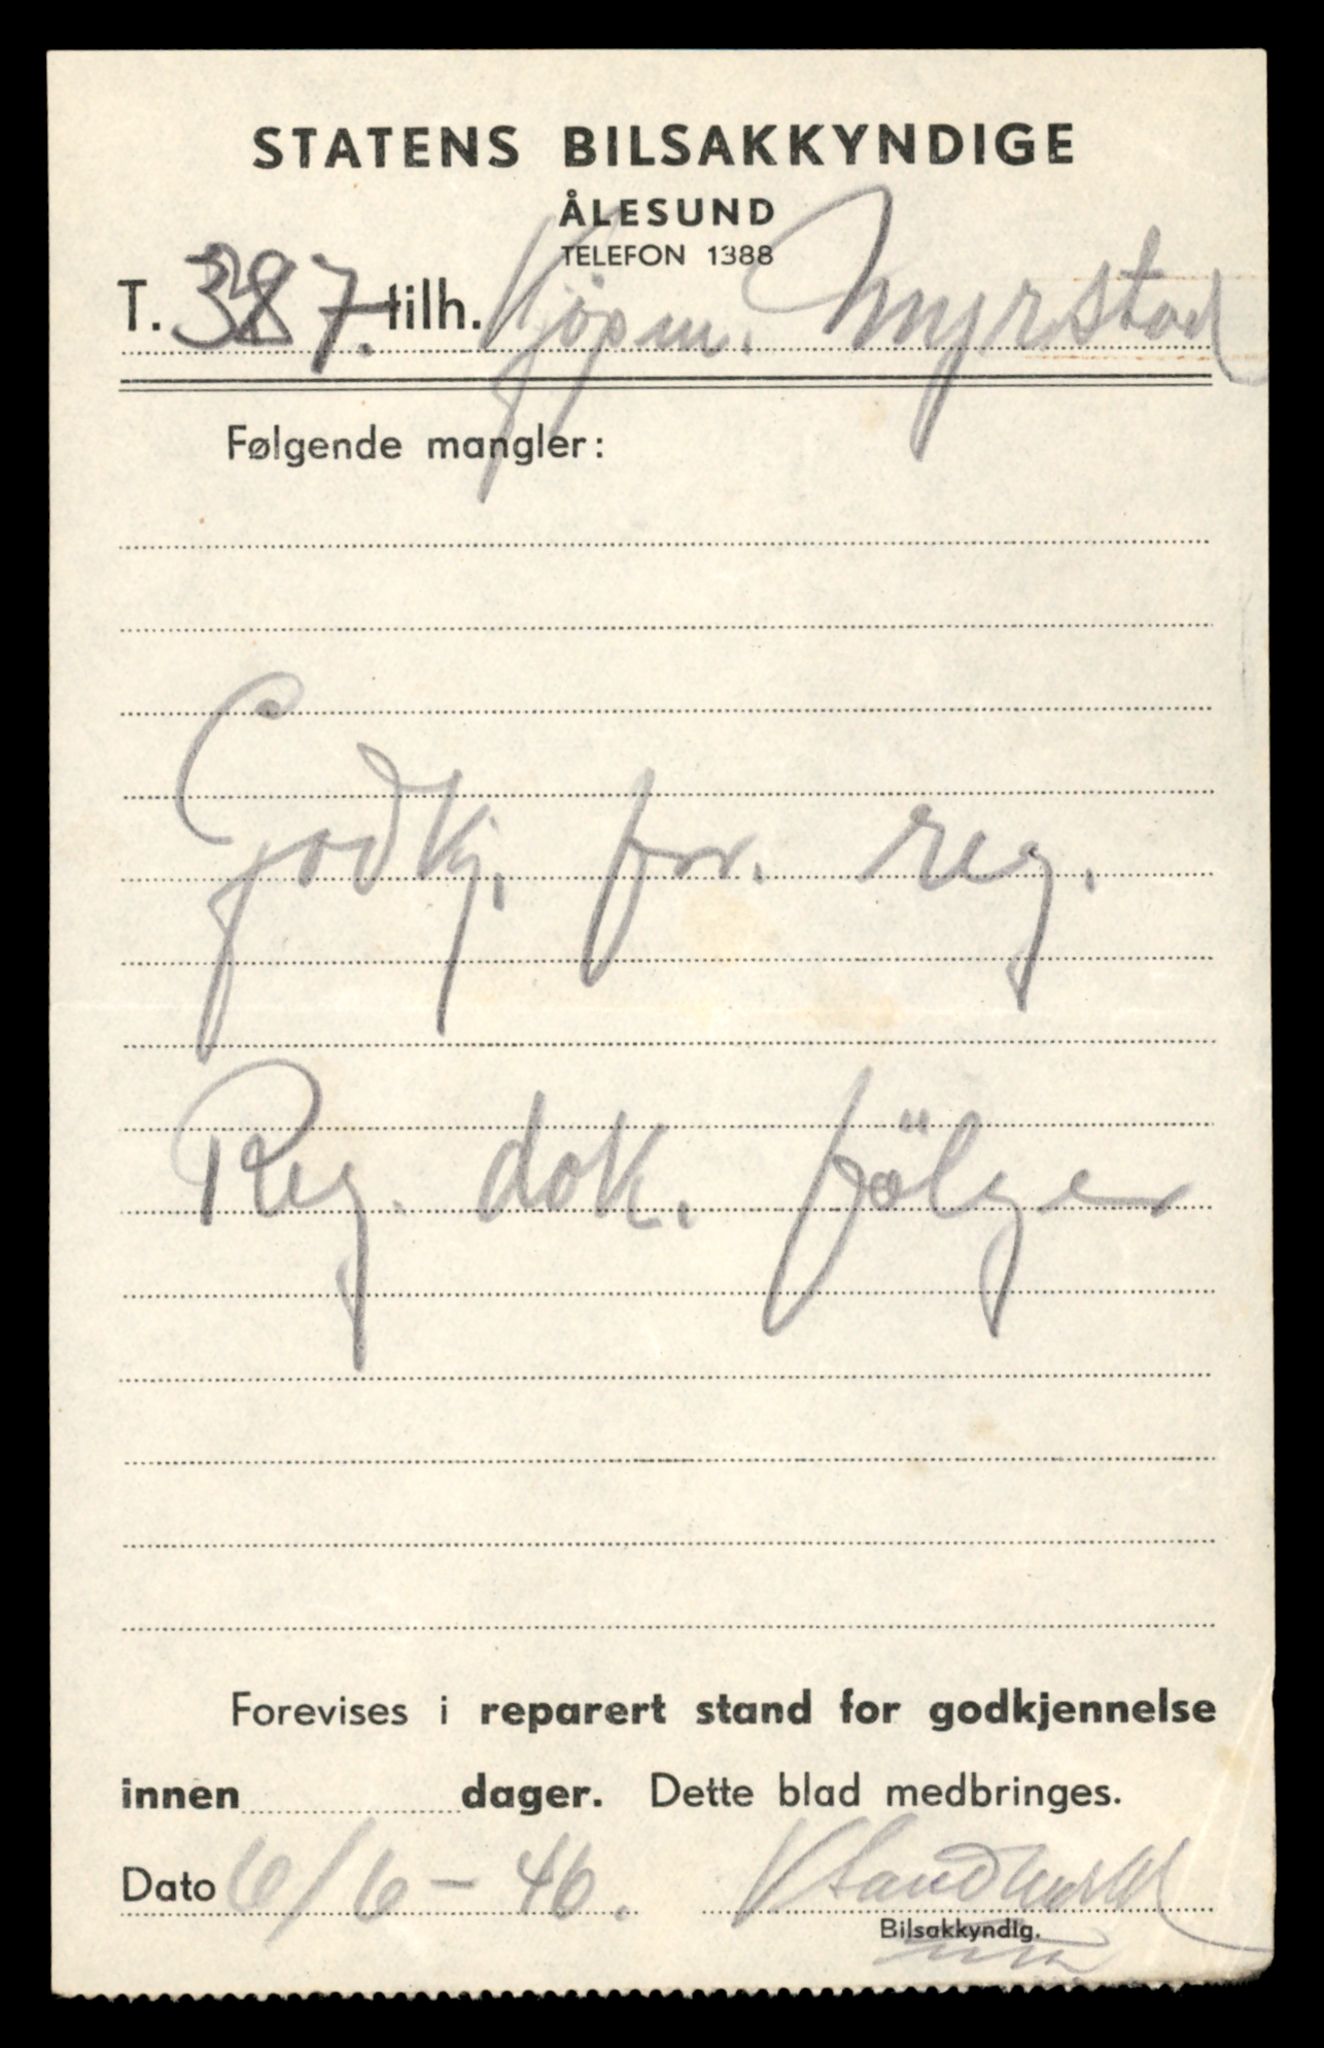 STATENS BILSAKKYNDIGE
ÅLESUND
TELEFON 1388
T. 387. tilh. Kjøpm. Myrstad
Følgende mangler:
Godkj. for. reg.
Reg. dok. fölger
Forevises i reparert stand for godkjennelse
innen dager. Dette blad medbringes.
Dato 6/6 - 46.
Bilsakkyndig.